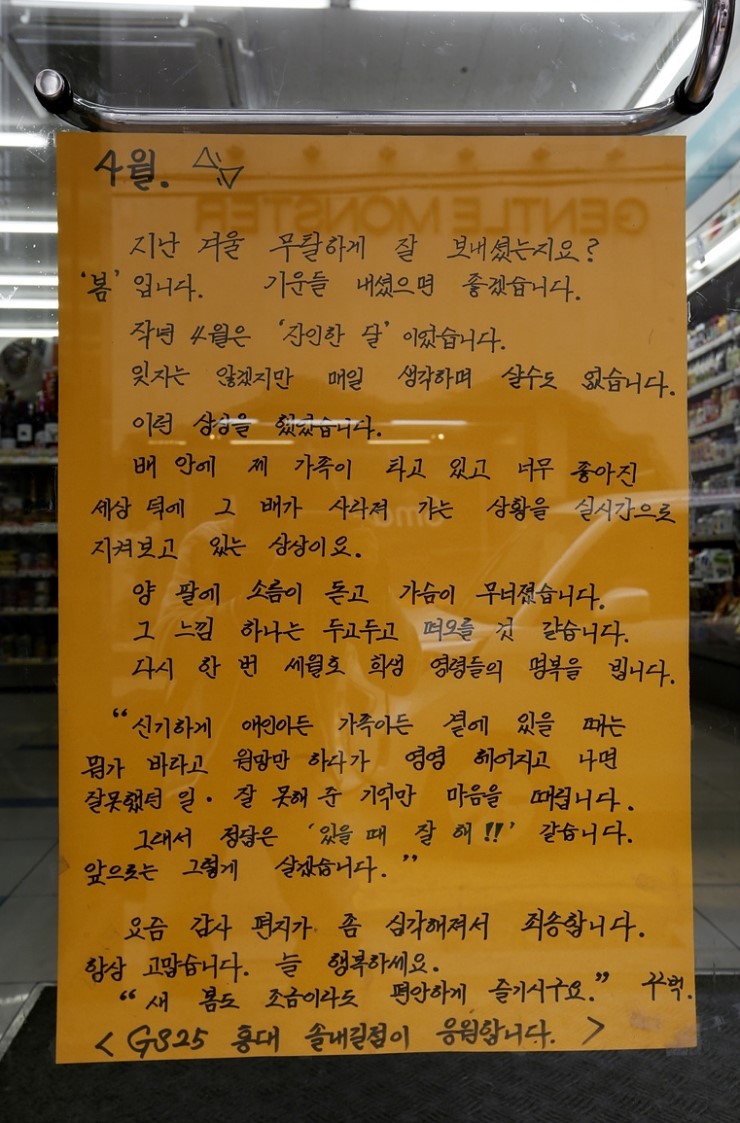 4월.
GENTLE MONSTER
지난 겨울 무탈하게 잘 보내셨는지요?
'봄' 입니다. 기운들 내셨으면 좋겠습니다.
작년 4월은 '잔인한 달' 이었습니다.
잊자는 않겠지만 매일 생각하며 살수도 없습니다.
이런 상상을 했었습니다.
배 안에 제 가족이 타고 있고 너무 좋아진
세상 덕에 그 배가 사라져 가는 상황을 실시간으로
지켜보고 있는 상상이요.
양 팔에 소름이 돋고 가슴이 무너졌습니다.
그 느낌 하나는 두고두고 떠오를 것 같습니다.
다시 한 번 세월호 희생 영령들의 명복을 빕니다.
"신기하게 애인이든 가족이든 곁에 있을 때는
뭔가 바라고 원망만 하다가 영영 헤어지고 나면
잘못했던 일. 잘 못해 준 기억만 마음을 때립니다.
그래서 정답은 '있을 때 잘 해!!' 같습니다.
앞으로는 그렇게 살겠습니다."
요즘 감사 편지가 좀 심각해져서 죄송합니다.
항상 고맙습니다. 늘 행복하세요.
"새 봄도 조금이라도 편안하게 즐기시구요." 꾸벅.
< GS25 홍대 솔내길점이 응원합니다. >